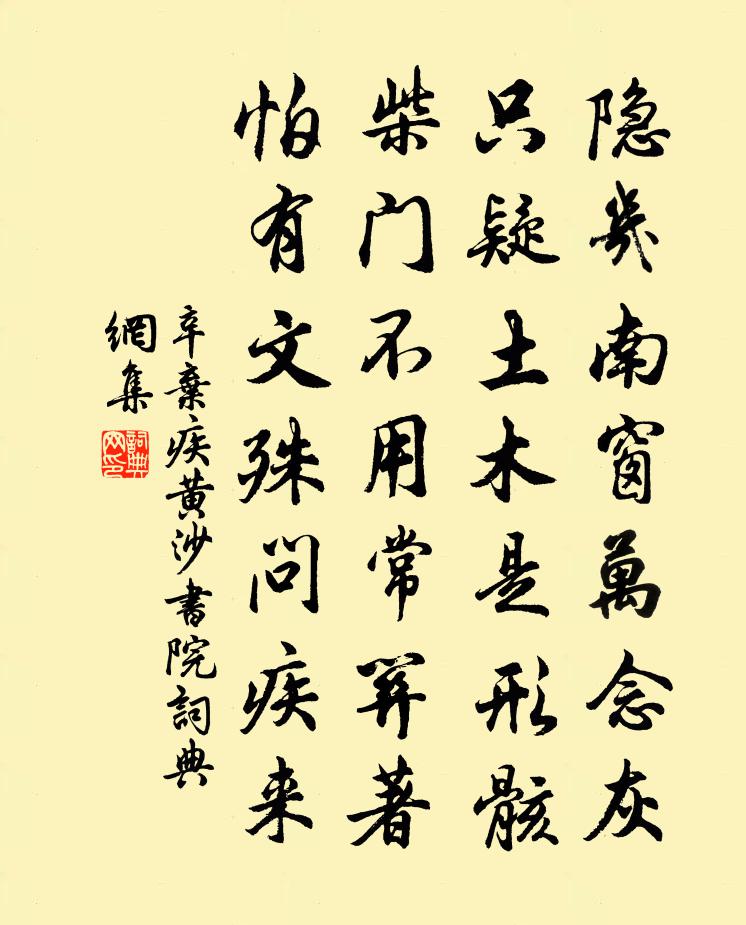 隐幾南窗萬念灰
只疑土木是形骸
柴门不用常關著
怕有文殊问疾来
辛棄疾黄沙書院詞典
網集
詞典
网印